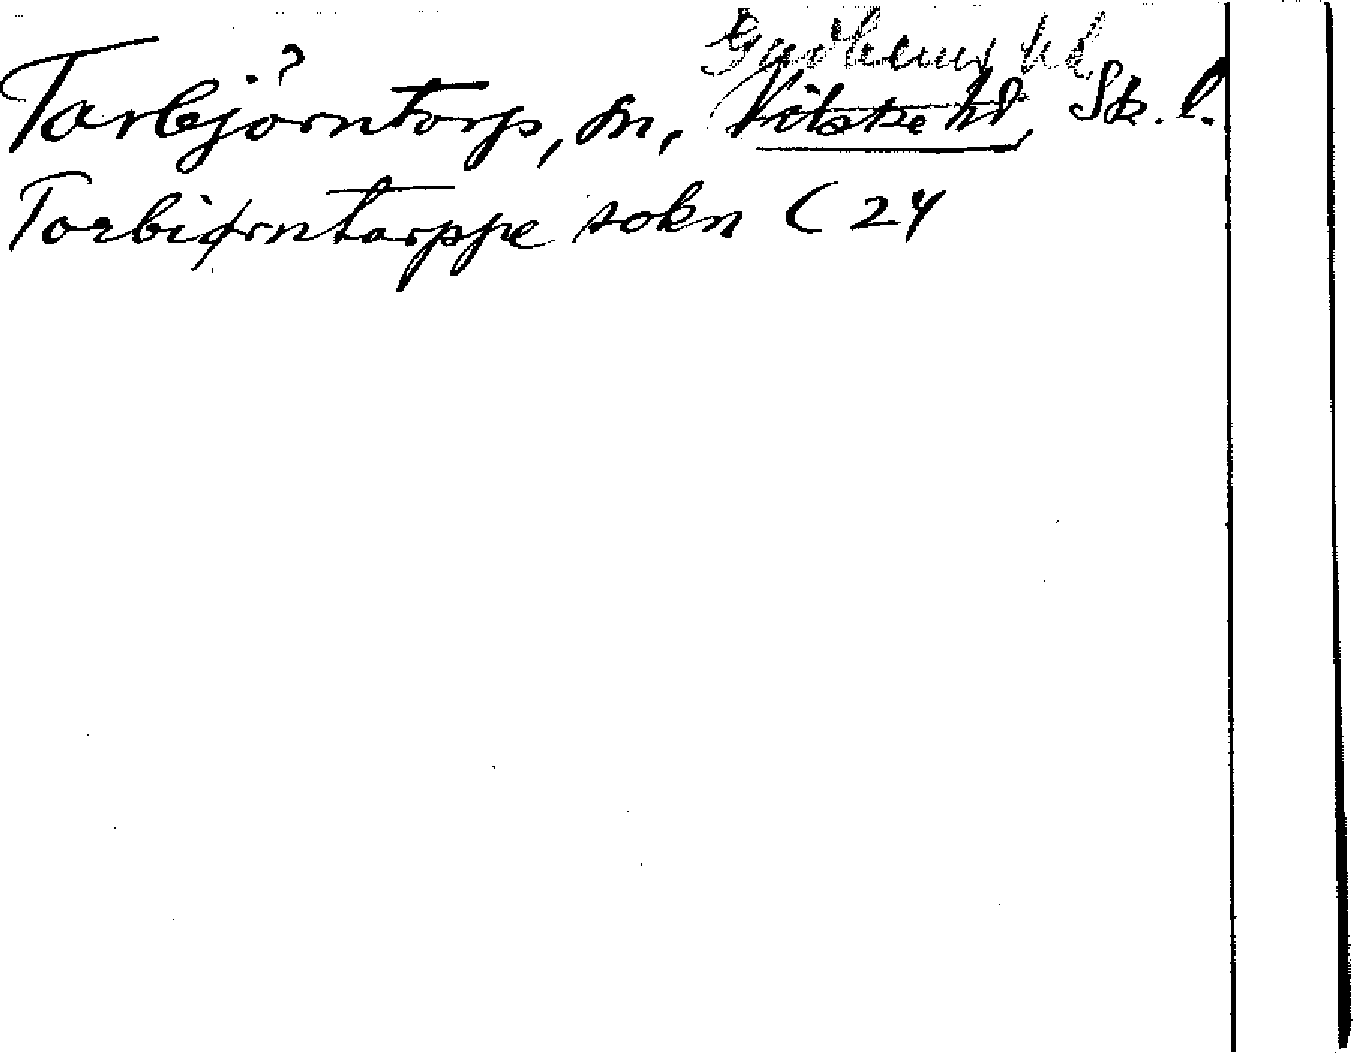 Gudhems hd
Torbjörntorp, sn, Vilske hd, Sk. l.
Torbiørntorppe sokn ( 24